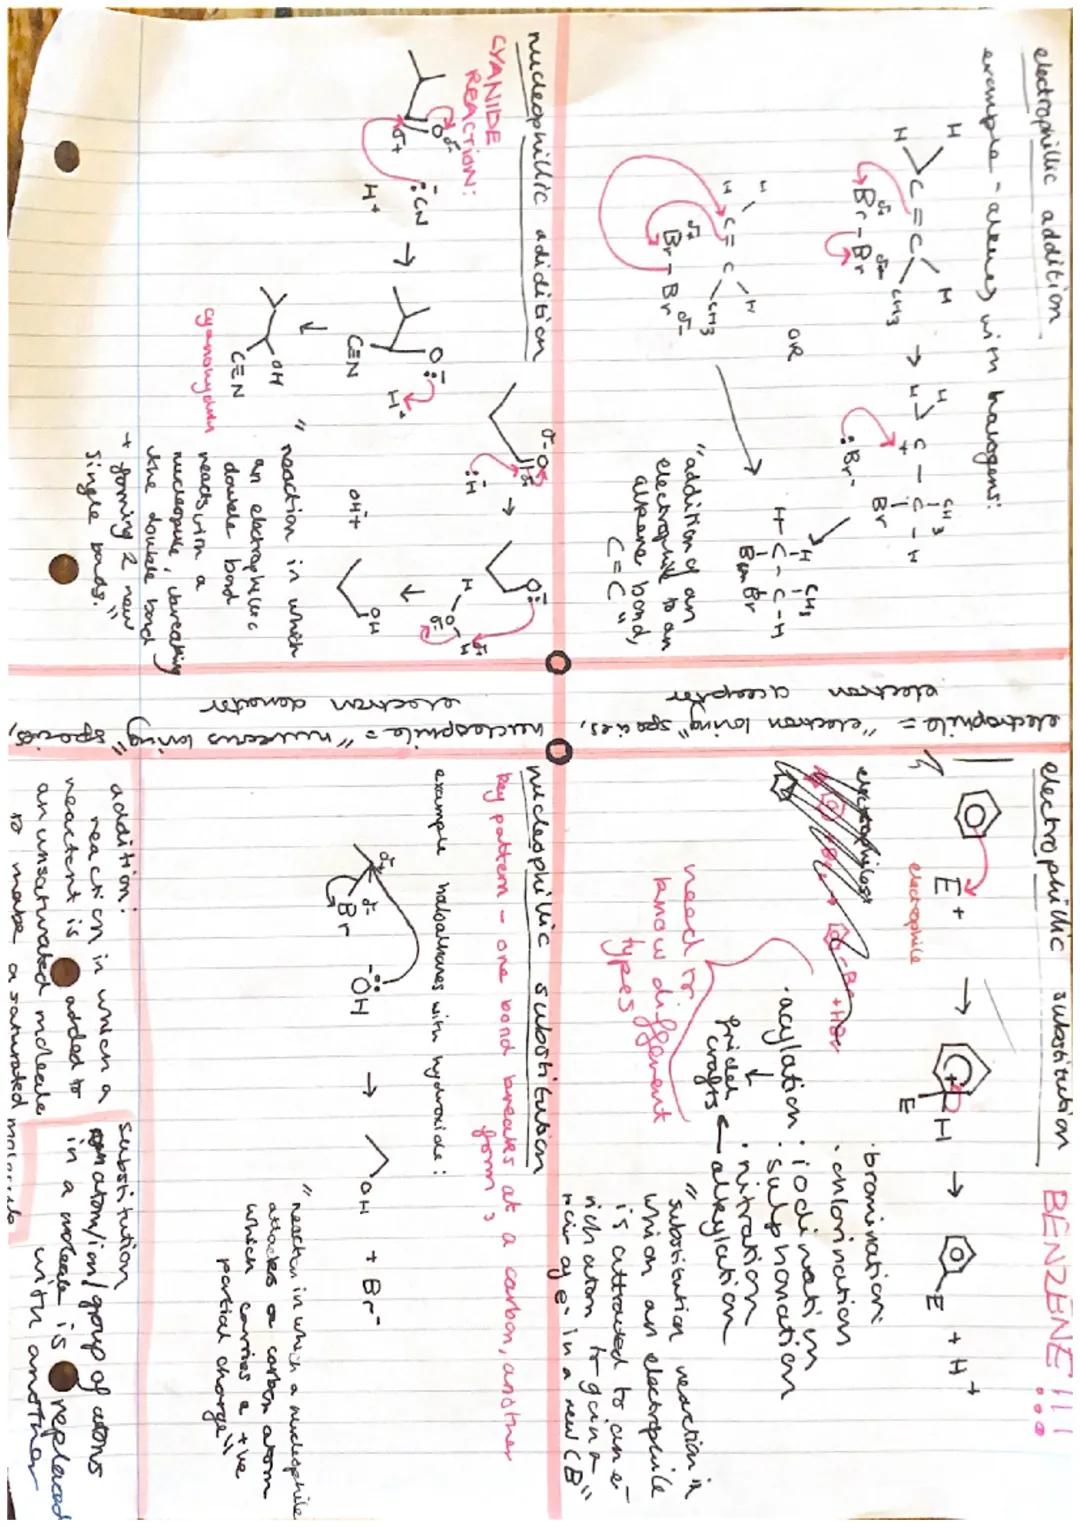 electrophillic addition
example - alkenes with halogens:
H
H
C = C
H
CH3
δ-
δ+
Br - Br
→
H
H
C
+
-
CH3
C - H
Br
:Br-
OR
H
H
C = C
H
CH3
δ+
Br - Br
δ-
H
CH3
H - C - C - H
Br
Br
"addition of an
electrophile to an
alkene bond,
C = C"
nucleophillic adidition
CYANIDE
REACTION:
O
δ-
δ+
:CN
H+
→
O:-
C≡N
H+
OH
C≡N
cyanohydrin
δ-
O
δ+
:H
→
O:-
H
δ-
O
H
δ+
OH
OH +
"reaction in which
an electrophilic
double bond
reacts with a
nucleophile, breaking
the double bond
+ forming 2 new
single bonds."
electrophile = "electron loving" species,
electron acceptor
nucleophile = "nucleus loving" species,
electron donator
electrophillic substitution BENZENE!!!
E+
electrophile
→
H
E
→
E + H+
need to
know different
types
· bromination
· chlorination
· iodination
· sulphonation
· nitration
· alkylation
· acylation
friedel
crafts
"substitution reaction in
which an electrophile
is attracted to an e-
rich atom to gain a
pair of e- in a new CB"
nucleophillic substitution
key pattern - one bond breaks at a carbon, another
forms
example haloalkanes with hydroxide:
δ+
δ-
Br
-:OH
→
OH + Br-
"reaction in which a nucleophile
attacks a carbon atom
which carries a +ve
partial charge"
addition:
reaction in which a
reactent is added to
an unsaturated molecule
to make a saturated molecule
substitution
atom/ion/group of atoms
in a molecule is replaced
with another